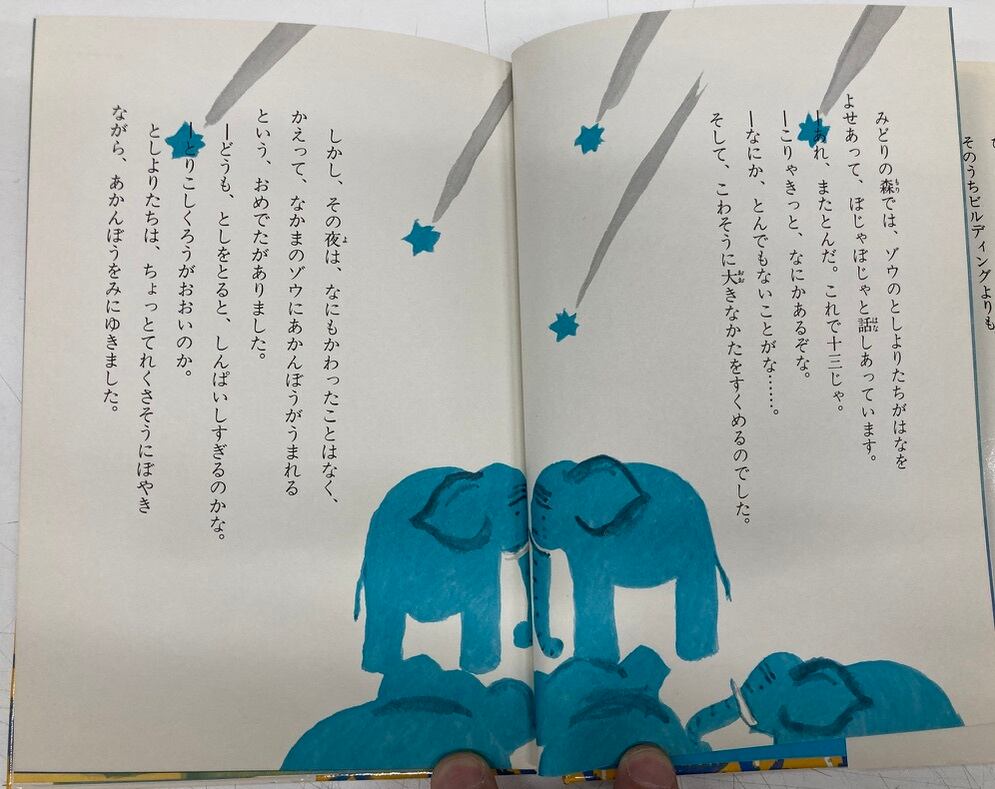 そのうちビルディングよりも
みどりの森では、ゾウのとしよりたちがはなを
よせあって、ぼじゃぼじゃと話しあっています。
ーあれ、またとんだ。これで十三じゃ。
ーこりゃきっと、なにかあるぞな。
ーなにか、とんでもないことがな……。
そして、こわそうに大きなかたをすくめるのでした。
しかし、その夜は、なにもかわったことはなく、
かえって、なかまのゾウにあかんぼうがうまれる
という、おめでたがありました。
ーどうも、としをとると、しんぱいしすぎるのかな。
ーとりこしくろうがおおいのか。
としよりたちは、ちょっとてれくさそうにぼやき
ながら、あかんぼうをみにゆきました。